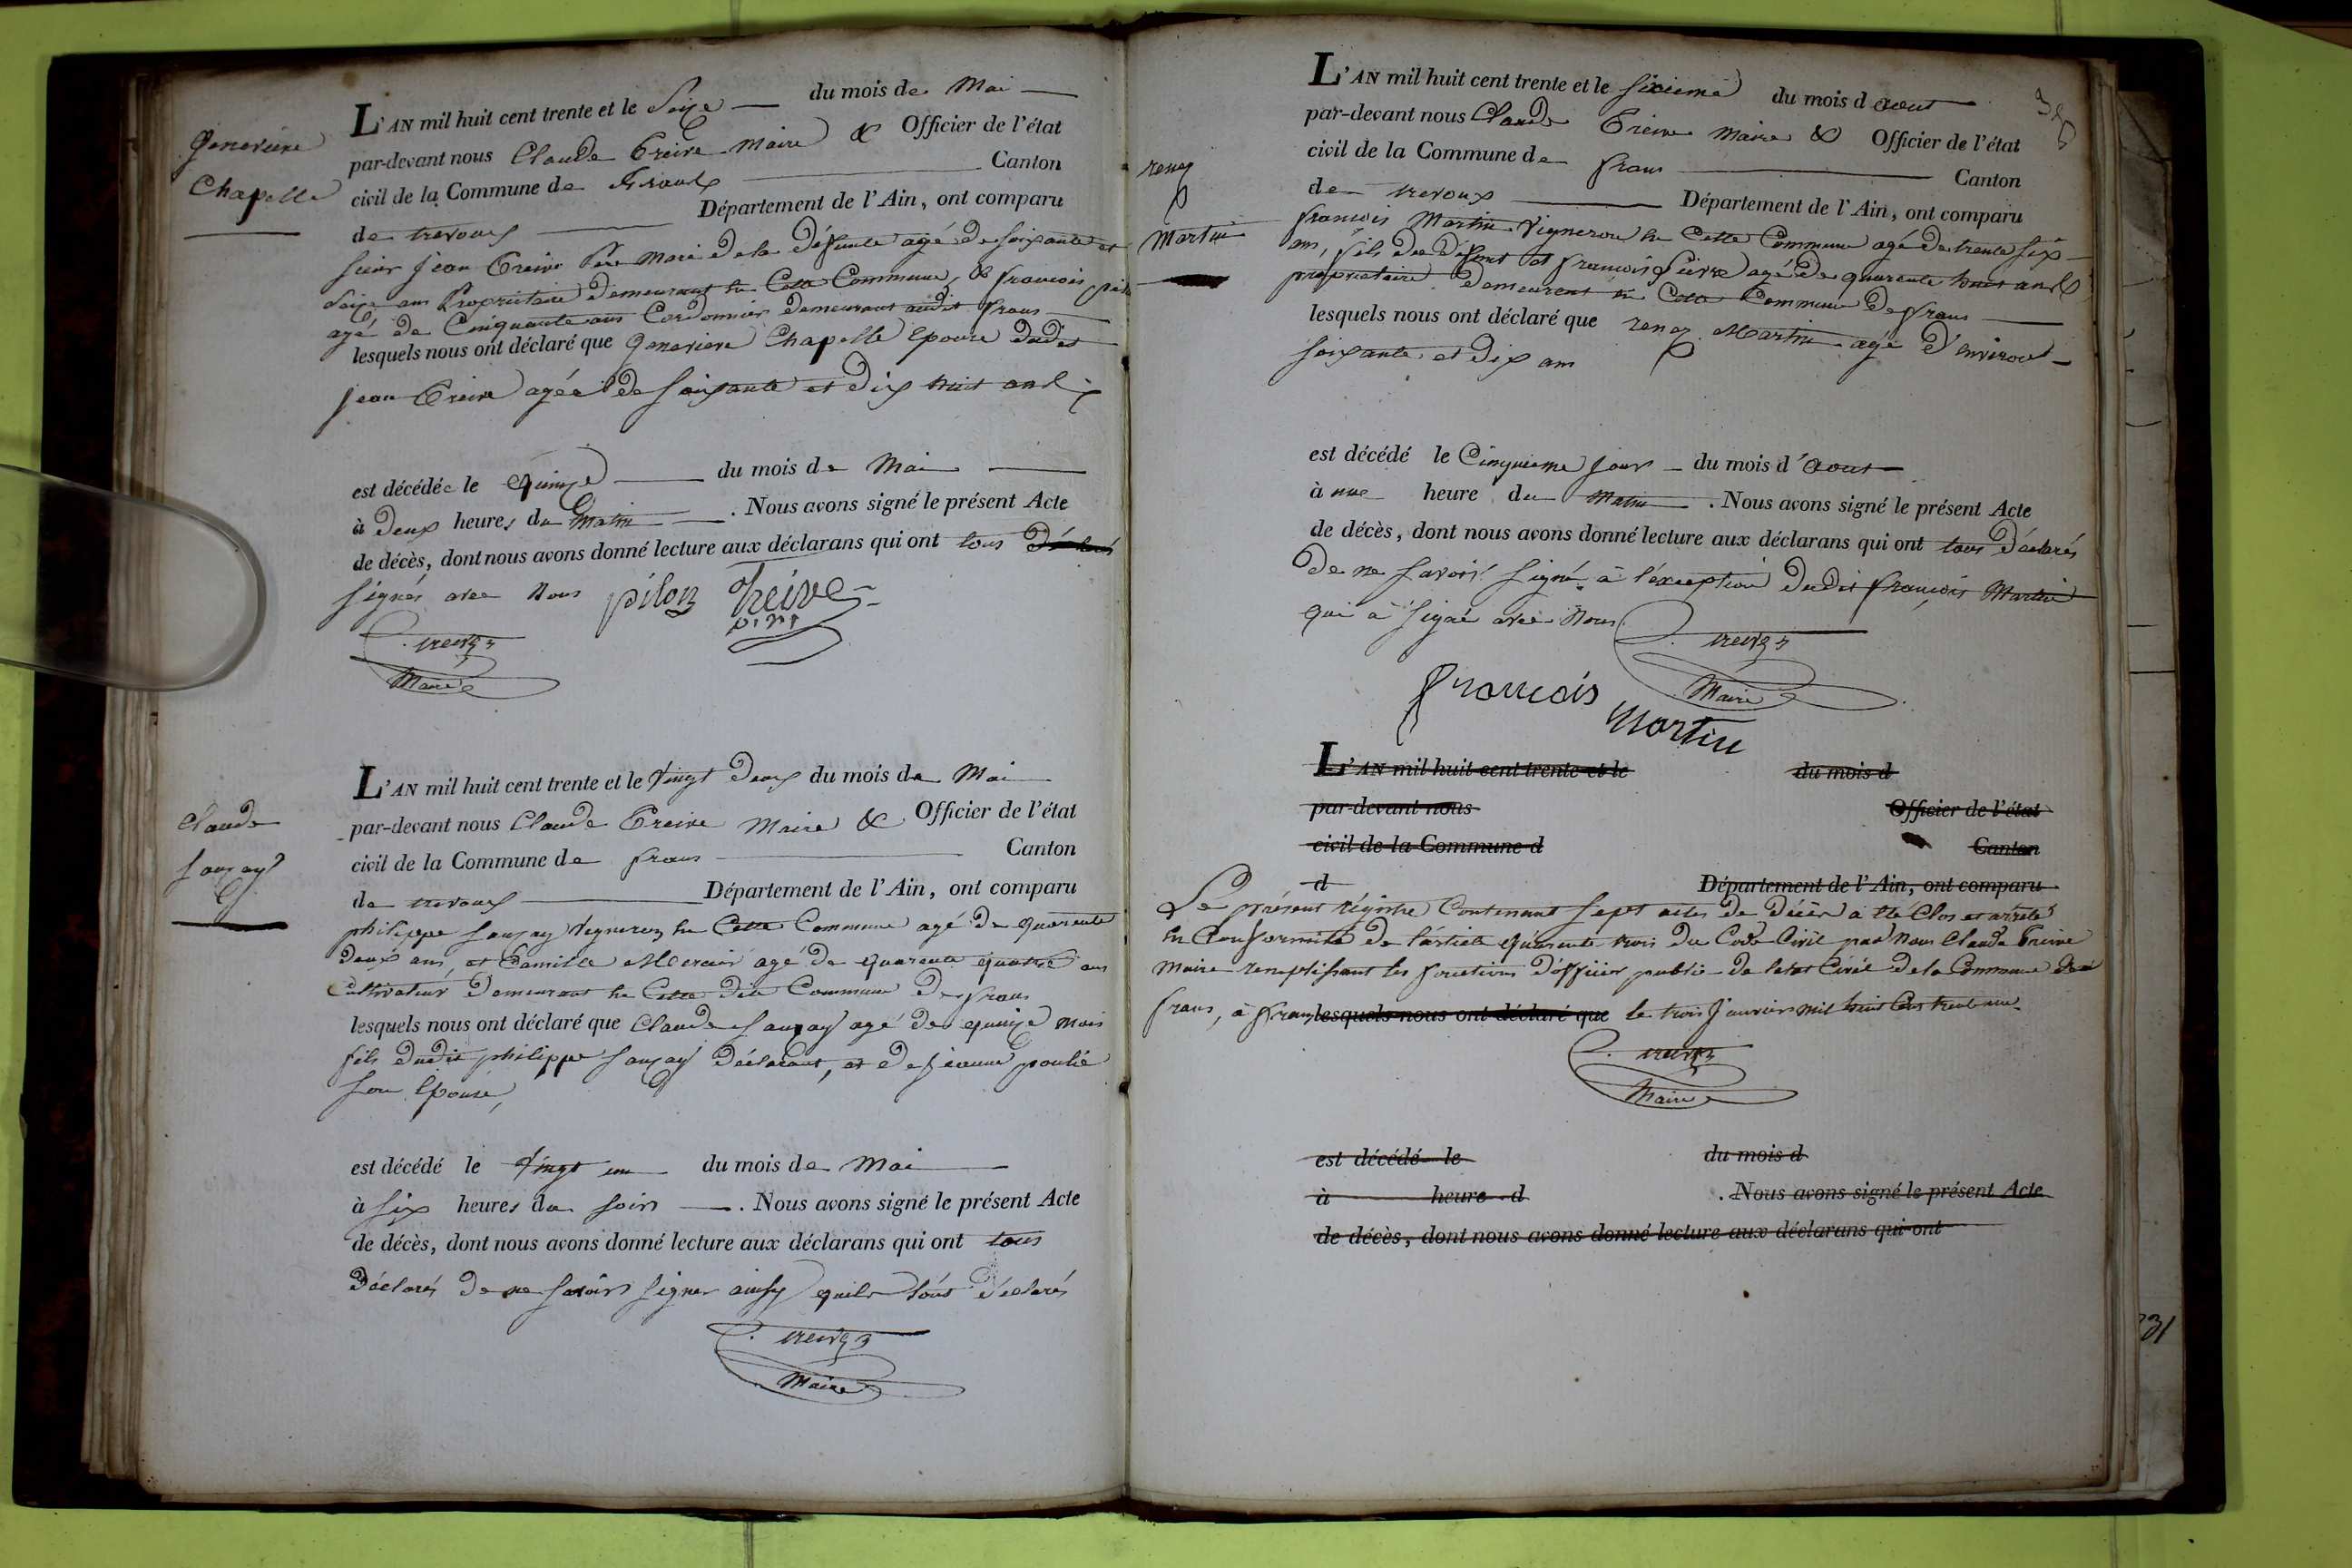 Genevieve
Chapelle
L'AN mil huit cent trente et le Seize du mois de Mai
par-devant nous Claude Treive Maire & Officier de l'état
civil de la Commune de Frans Canton
de trevoux Département de l'Ain, ont comparu
Sieur Jean Treive Père Mari de la Défunte agé de soixante et
Seize ans Propriétaire demeurant en Cette Commune, & francois pilon
agé de Cinquante ans Cordonnier demeurant audit frans
lesquels nous ont déclaré que Genevieve Chapelle Epouse dudit
Jean Treive agée de soixante et Dix huit ans
est décédée le quinze du mois de Mai
à Deux heures du Matin. Nous avons signé le présent Acte
de décès, dont nous avons donné lecture aux déclarans qui ont tous
signés avec Nous pilon Treive
C. treive
Maire
Claude
sauzay
L'AN mil huit cent trente et le Vingt Deux du mois de Mai
par-devant nous Claude Treive Maire & Officier de l'état
civil de la Commune de frans Canton
de trevoux Département de l'Ain, ont comparu
philippe sauzay Vigneron en Cette Commune agé de quarente
Deux ans, et Camille Mercier agé de quarente quatre ans
Cultivateur Demeurant en Cette dite Commune de frans
lesquels nous ont déclaré que Claude sauzay agé de quinze Mois
fils dudit philippe sauzay Déclarant, et de
son Epouse,
est décédé le Vingt un du mois de Mai
à six heures du soir. Nous avons signé le présent Acte
de décès, dont nous avons donné lecture aux déclarans qui ont tous
Déclarés de ne savoir signer ainsy quils l'ont Déclarés
C. treive
Maire
L'AN mil huit cent trente et le sixieme du mois d aout
par-devant nous Claude Treive Maire & Officier de l'état
civil de la Commune de frans Canton
de trevoux Département de l'Ain, ont comparu
renez
Martin
francois Martin Vigneron en Cette Commune agé de trente six
ans, fils du défunt et francois agé de quarente huit ans
propriétaire demeurent en Cette Commune de frans
lesquels nous ont déclaré que renez Martin agé d'environ
soixante et Dix ans
est décédé le Cinquieme jour du mois d'aout
à une heure du Matin. Nous avons signé le présent Acte
de décès, dont nous avons donné lecture aux déclarans qui ont tous Déclarés
De ne savoir signé à l'exception dudit francois Martin
qui à signé avec Nous
C. treive
Maire
francois
Martin
L'AN mil huit cent trente et le du mois d
par-devant nous Officier de l'état
civil de la Commune d Canton
d Département de l'Ain, ont comparu
Le présent Régistre Contenant sept actes de Décès à été Clos et arrété
en Conformité de l'article quarente trois du Code Civil par Nous Claude Treive
Maire remplissant les fonctions d'officier public de letat Civil de la Commune de
frans, à frans lesquels nous ont déclaré que le trois Janvier mil huit Cent trente une
C. treive
Maire
est décédé le du mois d
à heure d . Nous avons signé le présent Acte
de décès, dont nous avons donné lecture aux déclarans qui ont